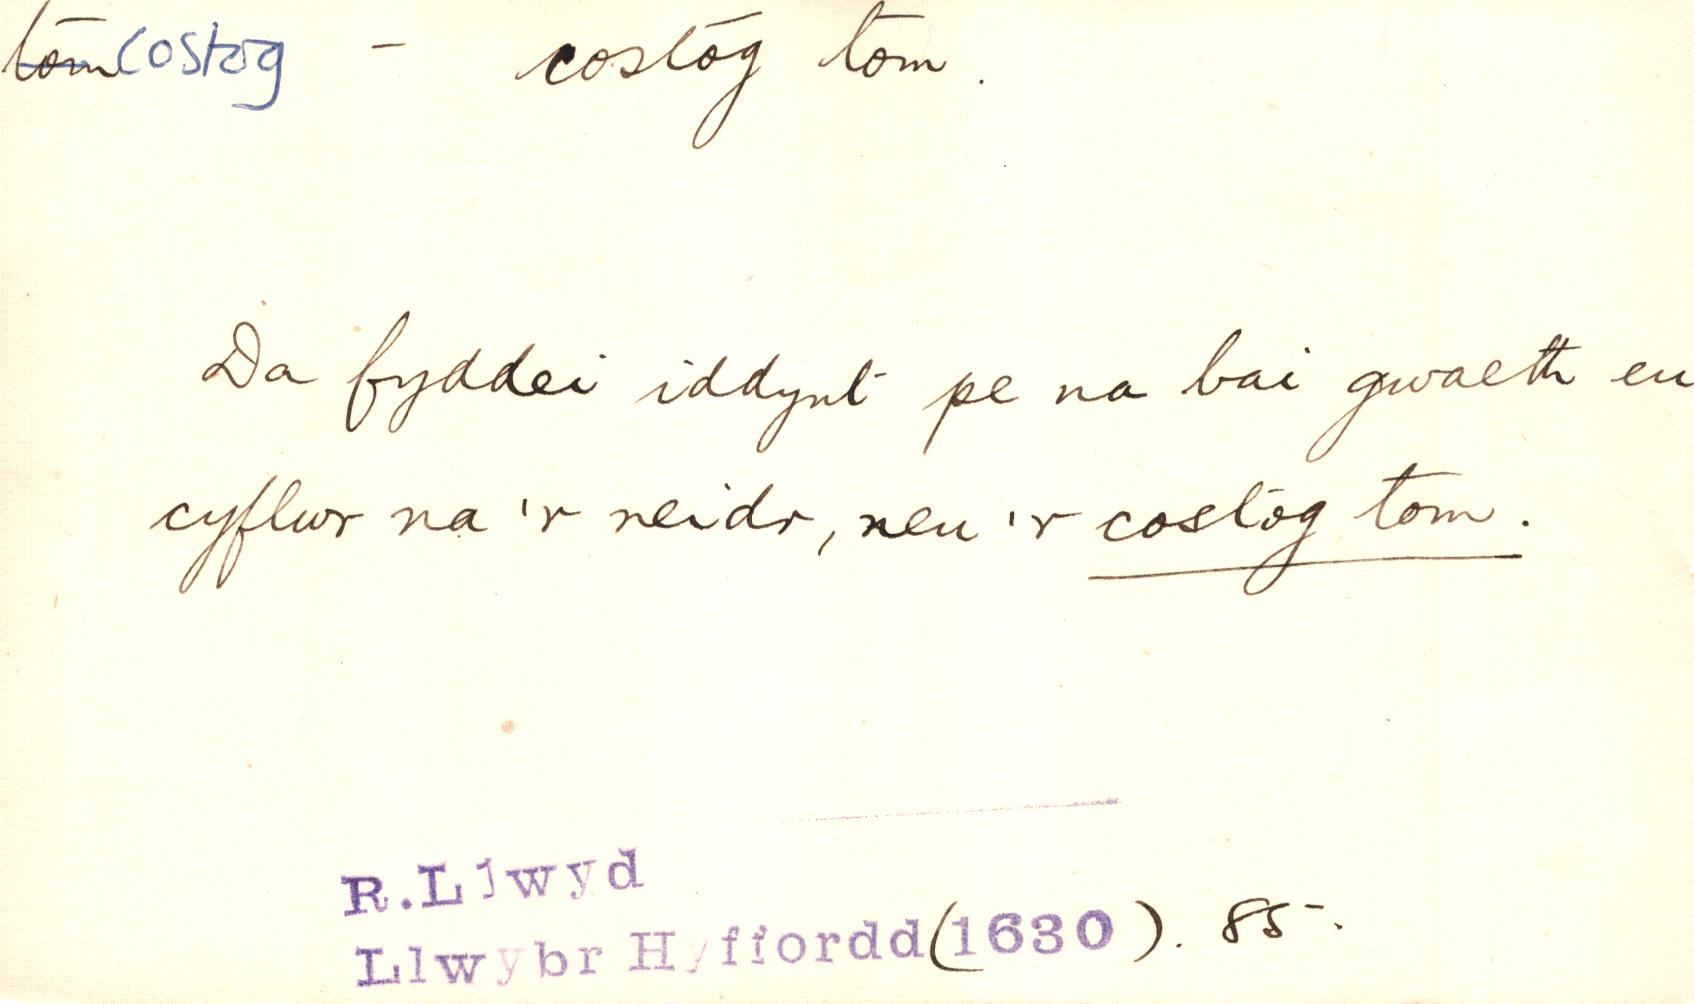 tom costog - costog tom.
Da fyddei iddynt pe na bai gwaeth eu
cyflwr na 'r neidr, neu 'r costog tom.
R.Llwyd
Llwybr Hyffordd (1630). 85.